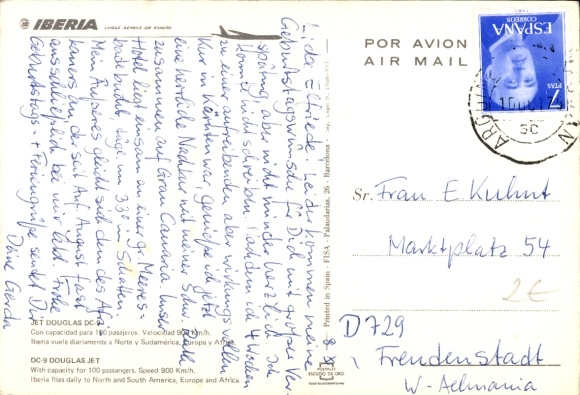 IBERIA
LINEAS AEREAS DE ESPAÑA
POR AVION
AIR MAIL
ESPAÑA
CORREOS
7
PTAS
Liebe Elfriede! Leider kommen meine
Geburtstagswünsche für Dich mit großer Ver-
spätung, aber nicht minder herzlich. Ich
konnte nicht schreiben, nachdem ich 4 Wochen
zu einer anstrengenden, aber wirkungsvollen
Kur in Kärnten war, genieße ich jetzt
eine herrliche Nachkur mit meiner Schwester
zusammen auf Gran Canaria. Unser
Hotel liegt einsam an einer gr. Meeres-
bucht
Mein Äußeres gleicht sich dem des Afri-
kaners an, der seit Anf. August fast
ausschließlich bei mir
Geburtstags- + Feriengrüße sendet Dir
Deine Gerda
Sr. Frau E Kuhnt
Marktplatz 54
2€
D 729
Freudenstadt
W.-Aelmania
JET DOUGLAS DC-9
Con capacidad para 100 pasajeros. Velocidad 900 Km/h.
Iberia vuela diariamente a Norte y Sudamérica, Europa y Africa.
DC-9 DOUGLAS JET
With capacity for 100 passangers. Speed 900 Km/h.
Iberia flies daily to North and South America, Europe and Africa.
Printed in Spain - FISA - Palaudarias, 26 - Barcelona